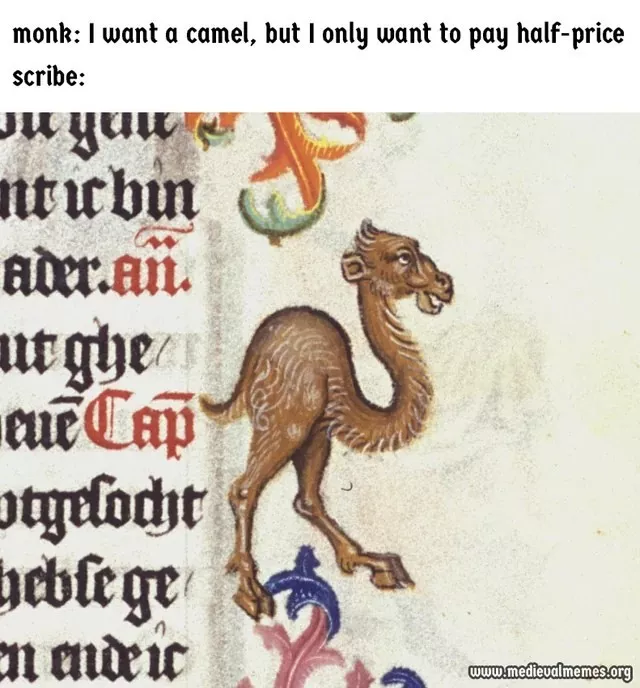 monk: I want a camel, but I only want to pay half-price
scribe:
nt ic bin
ader. an̄.
ut ghe
euē Cap̄
otgesocht
hebse ge
en ende ic
www.medievalmemes.org